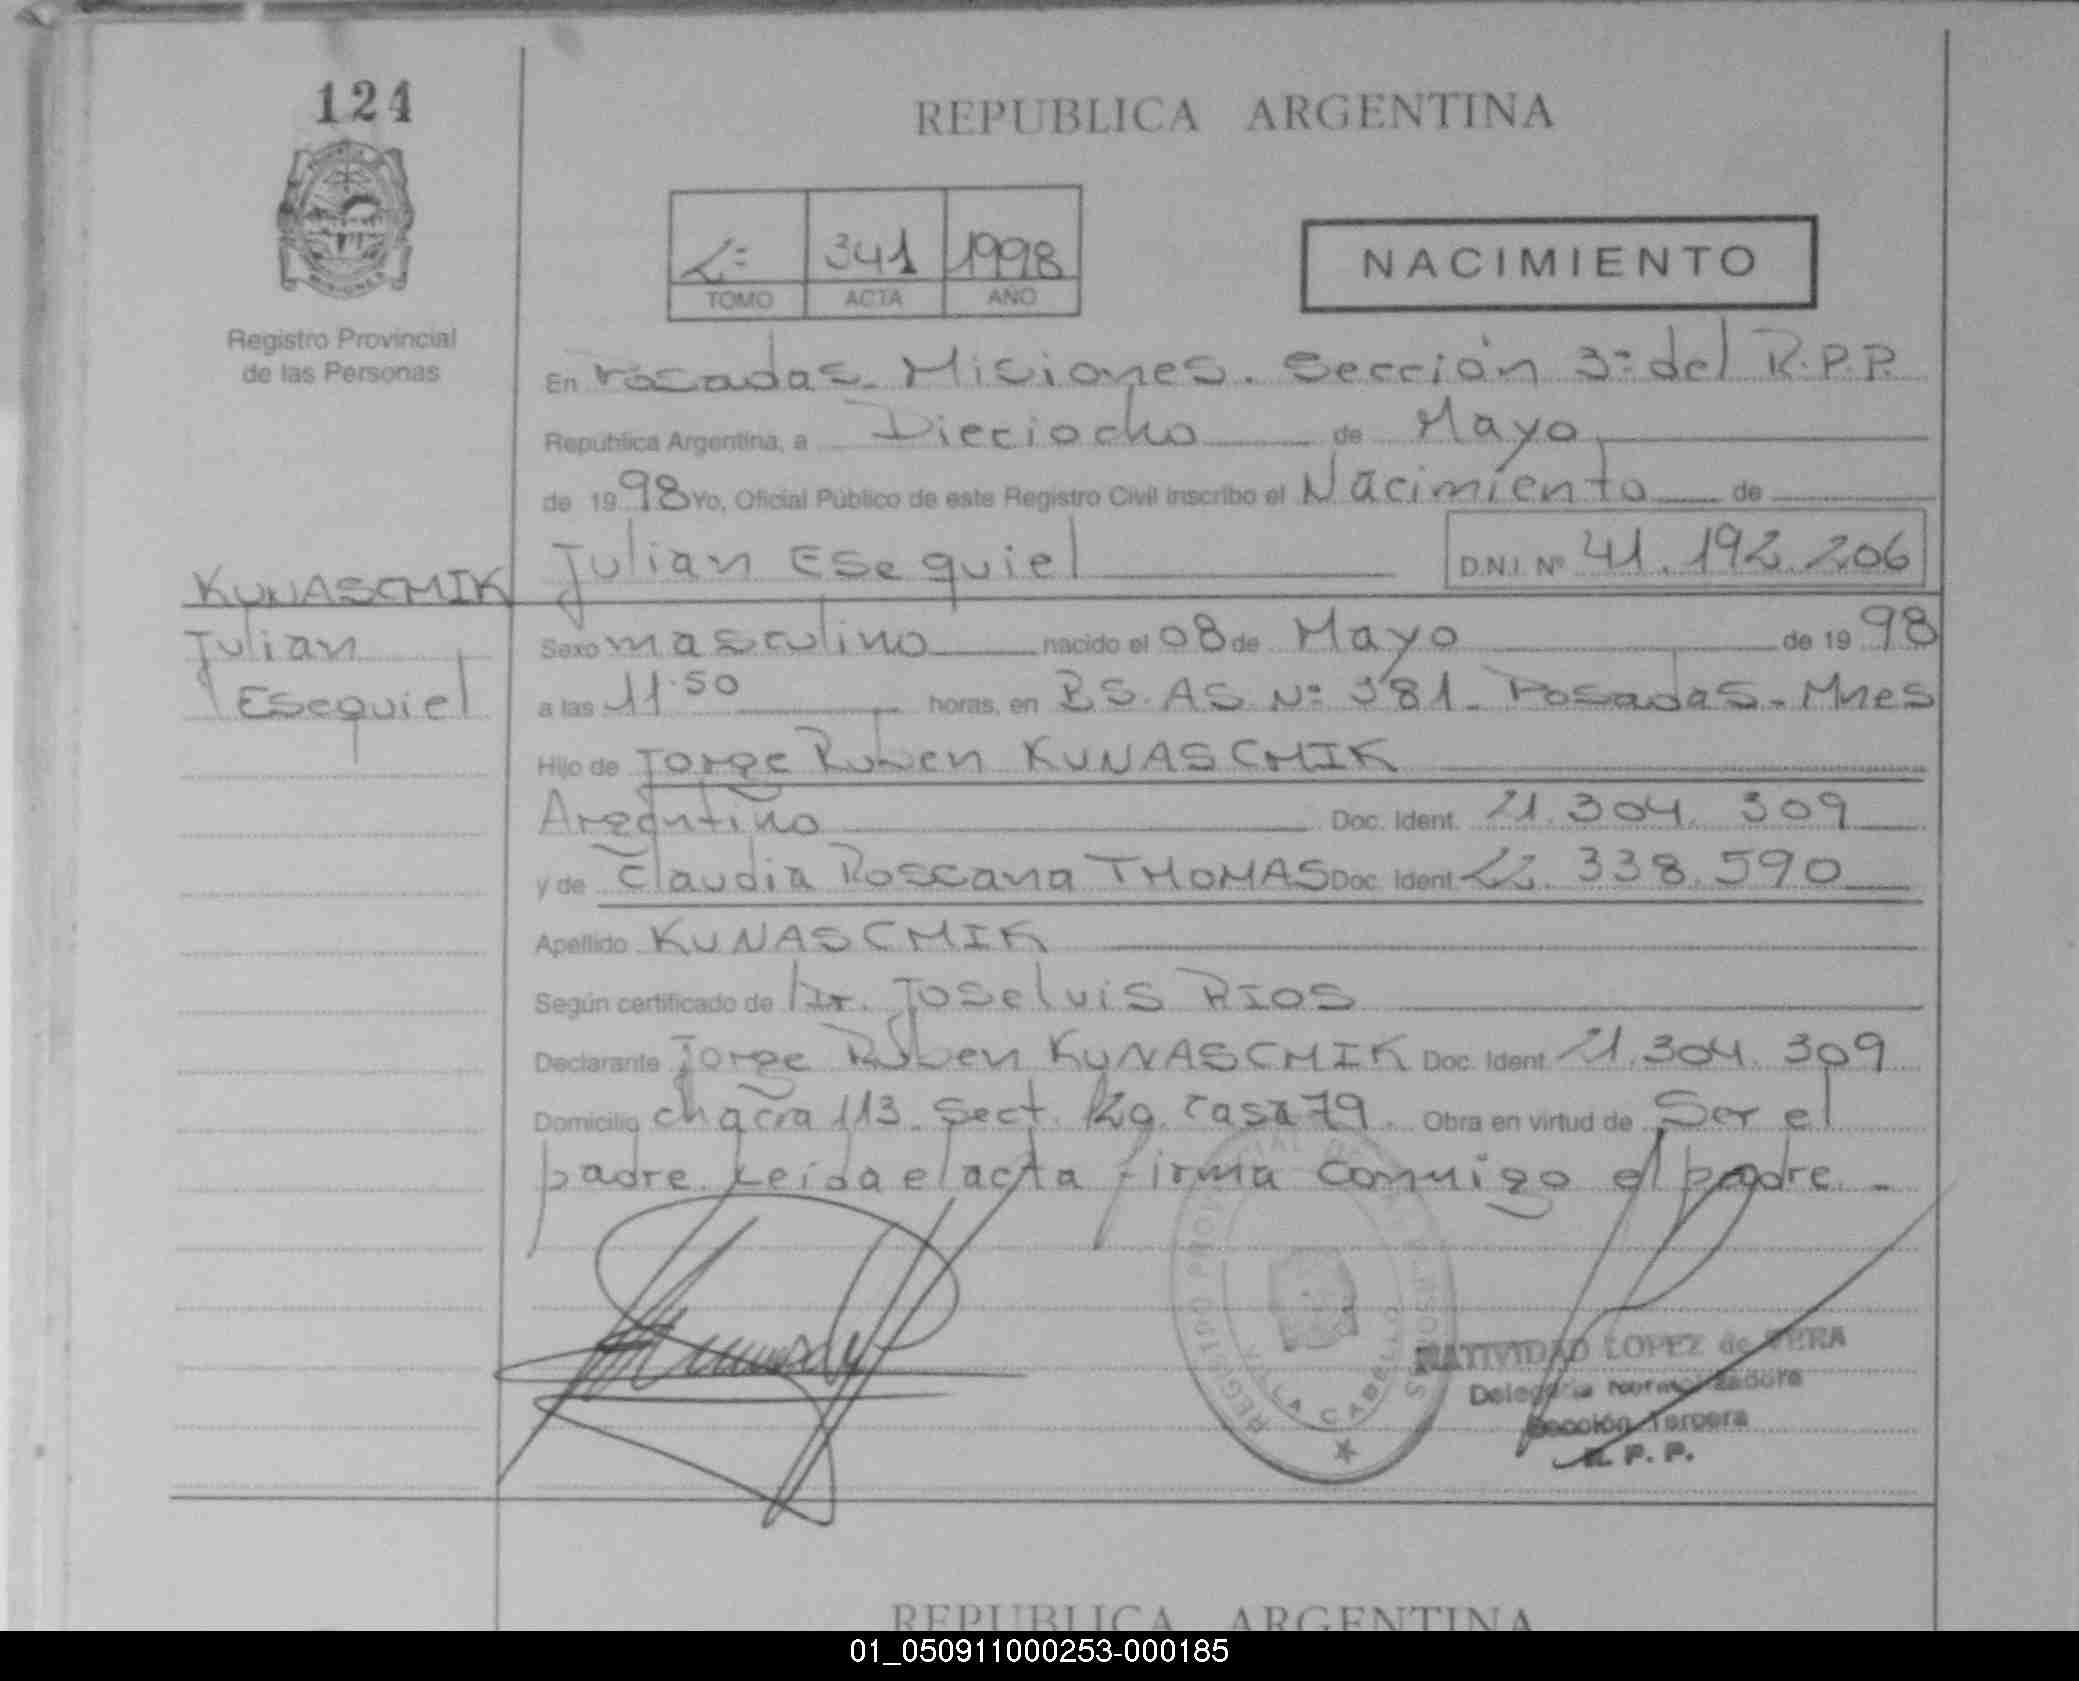 124
REPUBLICA ARGENTINA
2º 341 1998
TOMO ACTA AÑO
NACIMIENTO
Registro Provincial
de las Personas
En Posadas - Misiones. Sección 3º del R.P.P.
Republica Argentina, a Dieciocho de Mayo
de 1998 Yo, Oficial Público de este Registro Civil inscribo el Nacimiento de
Julian Esequiel D.N.I. Nº 41.192.206
KUNASCHIK
Julian
Esequiel
Sexo masculino nacido el 08 de Mayo de 1998
a las 11.50 horas, en BS.AS. Nº 981 - Posadas - Mnes
Hijo de Jorge Ruben KUNASCHIK
Argentino Doc. Ident. 21.304.309
y de Claudia Roscana THOMAS Doc. Ident. 22.338.590
Apellido KUNASCHIK
Según certificado de Dr. Jose luis RIOS
Declarante Jorge Ruben KUNASCHIK Doc. Ident. 21.304.309
Domicilio chacra 113. Sect. casa 79. Obra en virtud de Ser el
padre. Leída el acta firma conmigo el padre. -
REGISTRO
VILLA CABELLO
NATIVIDAD LOPEZ de VERA
Delegada Normalizadora
Sección Tercera
R. P. P.
REPUBLICA ARGENTINA
01_050911000253-000185